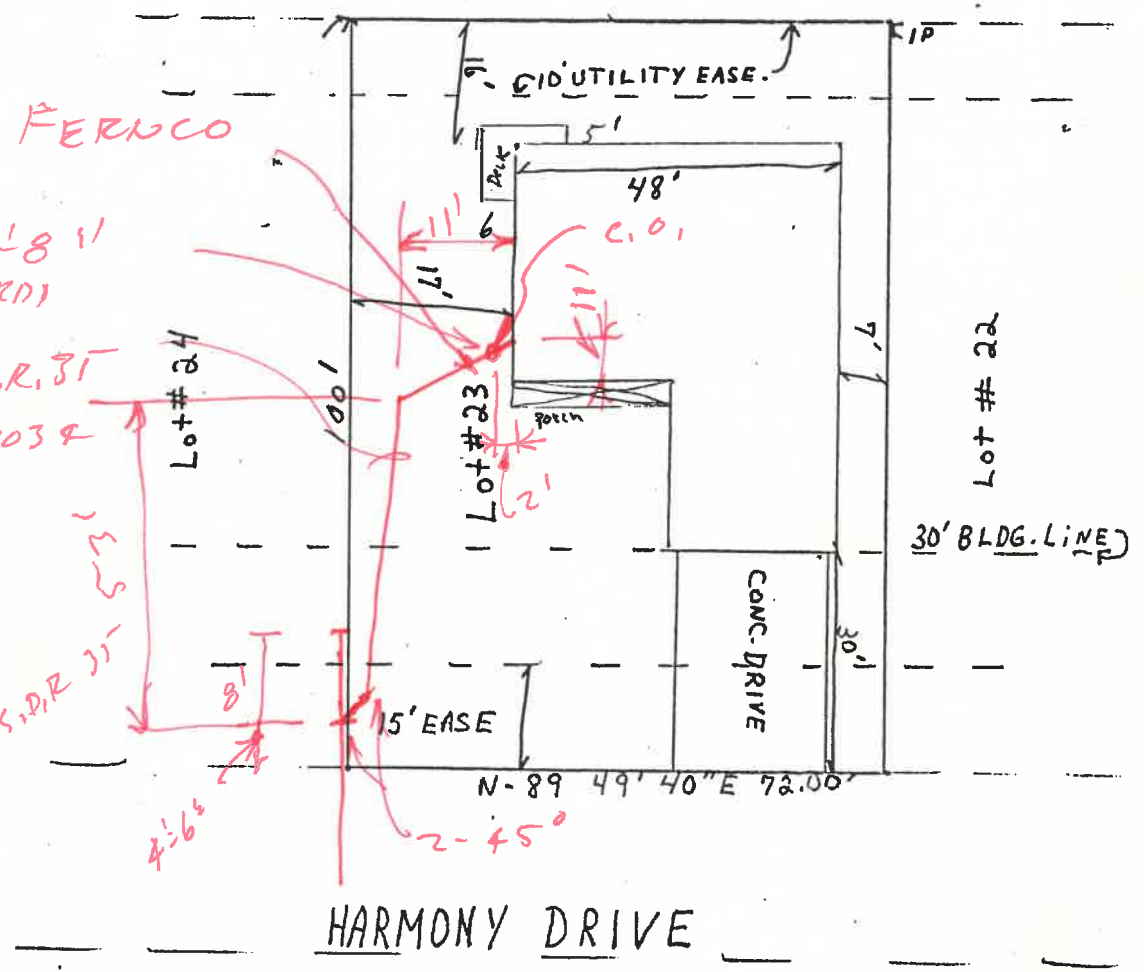 IP
16'
10' UTILITY EASE.
FERNCO
5'
DECK
48'
11'
6
C.O.
17'
11'
7'
Lot # 24
100'
Lot # 23
Porch
2'
Lot # 22
30' BLDG. LINE
53'
CONC-DRIVE
30'
8'
S.D.R 35
15' EASE
N-89 49' 40" E 72.00'
4'-6"
2-45°
HARMONY DRIVE